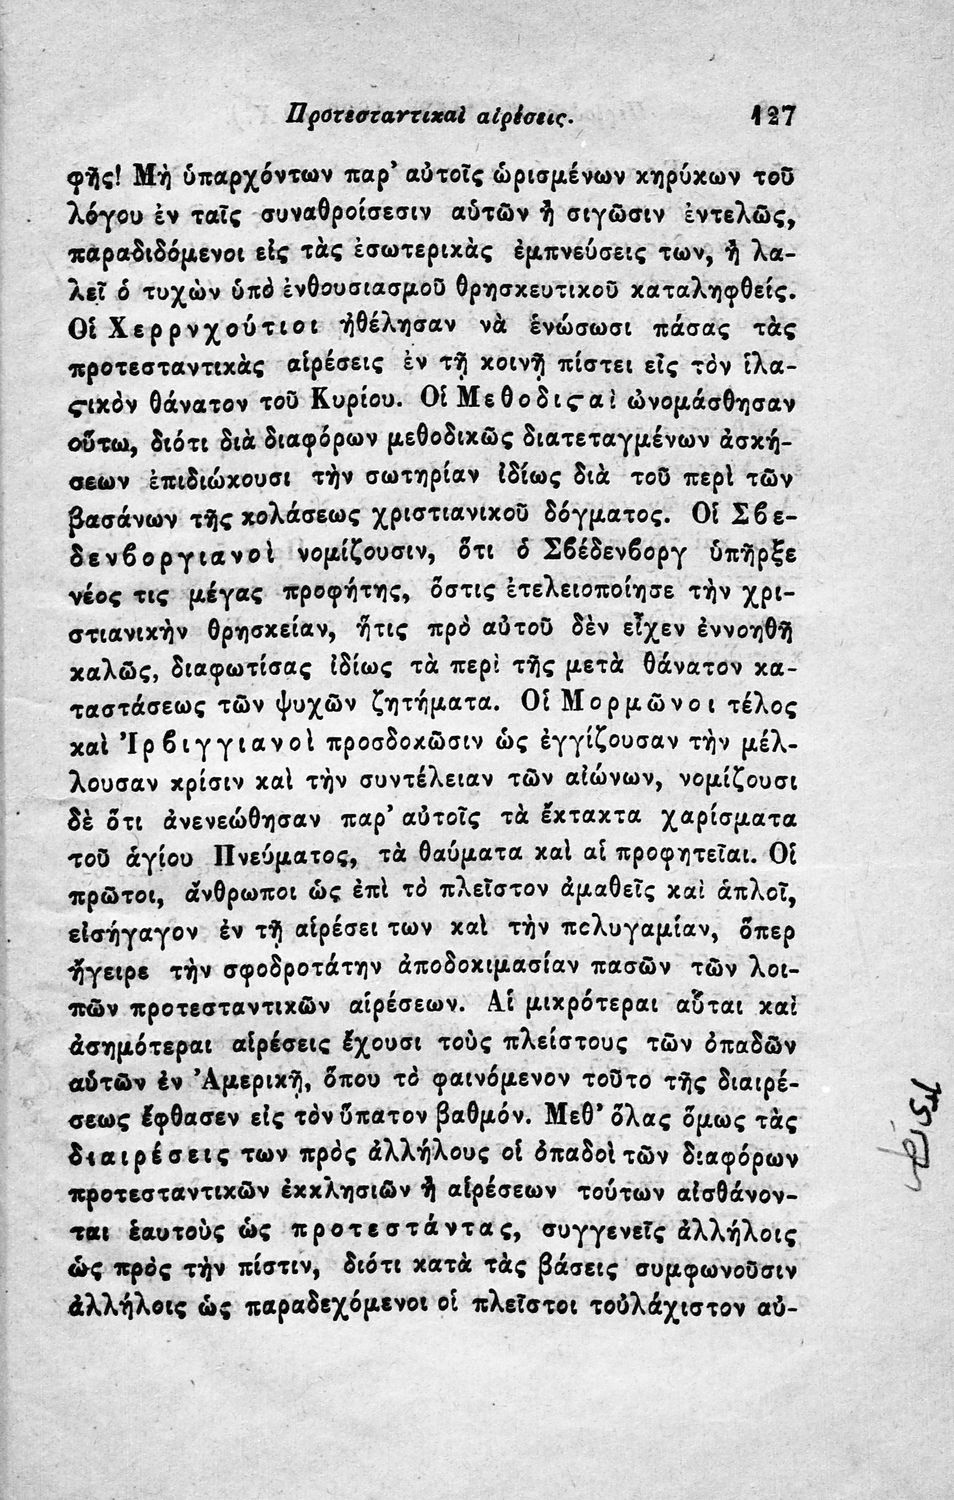 Προτεσταντικαὶ αἱρέσεις. 127
φῆς! Μὴ ὑπαρχόντων παρ’ αὐτοῖς ὡρισμένων κηρύκων τοῦ
λόγου ἐν ταῖς συναθροίσεσιν αὑτῶν ἢ σιγῶσιν ἐντελῶς,
παραδιδόμενοι εἰς τὰς ἐσωτερικὰς ἐμπνεύσεις των, ἢ λα-
λεῖ ὁ τυχὼν ὑπὸ ἐνθουσιασμοῦ θρησκευτικοῦ καταληφθείς.
Οἱ Χερρνχούτιοι ἠθέλησαν νὰ ἑνώσωσι πάσας τὰς
προτεσταντικὰς αἱρέσεις ἐν τῇ κοινῇ πίστει εἰς τὸν ἱλα-
ϛικὸν θάνατον τοῦ Κυρίου. Οἱ Μεθοδιϛαὶ ὠνομάσθησαν
οὕτω, διότι διὰ διαφόρων μεθοδικῶς διατεταγμένων ἀσκή-
σεων ἐπιδιώκουσι τὴν σωτηρίαν ἰδίως διὰ τοῦ περὶ τῶν
βασάνων τῆς κολάσεως χριστιανικοῦ δόγματος. Οἱ Σϐε-
δενϐοργιανοὶ νομίζουσιν, ὅτι ὁ Σϐέδενϐοργ ὑπῆρξε
νέος τις μέγας προφήτης, ὅστις ἐτελειοποίησε τὴν χρι-
στιανικὴν θρησκείαν, ἥτις πρὸ αὐτοῦ δὲν εἶχεν ἐννοηθῆ
καλῶς, διαφωτίσας ἰδίως τὰ περὶ τῆς μετὰ θάνατον κα-
ταστάσεως τῶν ψυχῶν ζητήματα. Οἱ Μορμῶνοι τέλος
καὶ Ἰρϐιγγιανοὶ προσδοκῶσιν ὡς ἐγγίζουσαν τὴν μέλ-
λουσαν κρίσιν καὶ τὴν συντέλειαν τῶν αἰώνων, νομίζουσι
δὲ ὅτι ἀνενεώθησαν παρ’ αὐτοῖς τὰ ἔκτακτα χαρίσματα
τοῦ ἁγίου Πνεύματος, τὰ θαύματα καὶ αἱ προφητεῖαι. Οἱ
πρῶτοι, ἄνθρωποι ὡς ἐπὶ τὸ πλεῖστον ἀμαθεῖς καὶ ἁπλοῖ,
εἰσήγαγον ἐν τῇ αἱρέσει των καὶ τὴν πολυγαμίαν, ὅπερ
ἤγειρε τὴν σφοδροτάτην ἀποδοκιμασίαν πασῶν τῶν λοι-
πῶν προτεσταντικῶν αἱρέσεων. Αἱ μικρότεραι αὗται καὶ
ἀσημότεραι αἱρέσεις ἔχουσι τοὺς πλείστους τῶν ὀπαδῶν
αὑτῶν ἐν Ἀμερικῇ, ὅπου τὸ φαινόμενον τοῦτο τῆς διαιρέ-
σεως ἔφθασεν εἰς τὸν ὕπατον βαθμόν. Μεθ’ ὅλας ὅμως τὰς
διαιρέσεις των πρὸς ἀλλήλους οἱ ὀπαδοὶ τῶν διαφόρων
προτεσταντικῶν ἐκκλησιῶν ἢ αἱρέσεων τούτων αἰσθάνον-
ται ἑαυτοὺς ὡς προτεστάντας, συγγενεῖς ἀλλήλοις
ὡς πρὸς τὴν πίστιν, διότι κατὰ τὰς βάσεις συμφωνοῦσιν
ἀλλήλοις ὡς παραδεχόμενοι οἱ πλεῖστοι τοὐλάχιστον αὐ-